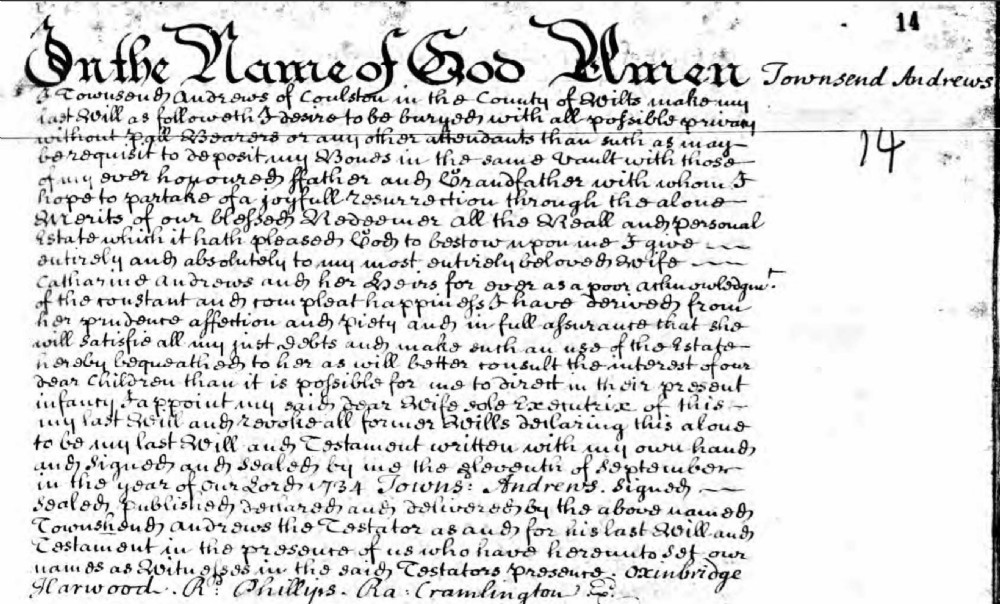 14
In the Name of God Amen Townsend Andrews
I Townsend Andrews of Coulston in the County of Wilts make my
last Will as followeth I desire to be buryed with all possible privacy
without Pall Bearers or any other attendants than such as may
14
be requisit to deposit my Bones in the same Vault with those
of my ever honoured ffather and Grandfather with whom I
hope to partake of a joyfull resurrection through the alone
Merits of our blessed Redeemer All the Reall and personal
Estate which it hath pleased God to bestow upon me I give
entirely and absolutely to my most entirely beloved Wife
Catharine Andrews and her Heirs for ever as a poor acknowledgmt.
of the constant and compleat happiness I have derived from
her prudence affection and piety and in full assurance that she
will satisfie all my just debts and make such an use of the Estate
hereby bequeathed to her as will better consult the interest of our
dear Children than it is possible for me to direct in their present
infancy I appoint my said dear Wife sole Executrix of this
my last Will and revoke all former Wills declaring this alone
to be my last Will and Testament written with my own hand
and signed and sealed by me the eleventh of September
in the year of our Lord 1734 Towns: Andrews. Signed
sealed published declared and delivered by the above named
Townshend Andrews the Testator as and for his last Will and
Testament in the presence of us who have hereunto set our
names as Witnesses in the said Testators presence. Oxinbridge
Harwood. Rd: Phillips. Ra: Cramlington